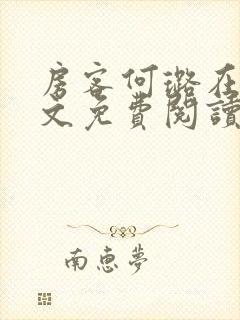 房客何璐在
文免費閱讀
南惠夢